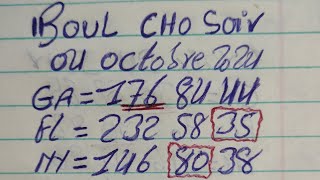 BOUL CHO Soir
04 octobre 2024
GA = 176 84 44
FL = 232 58 35
NY = 146 80 38